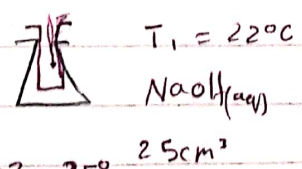 T₁ = 22°C
NaOH(aq)
25cm³